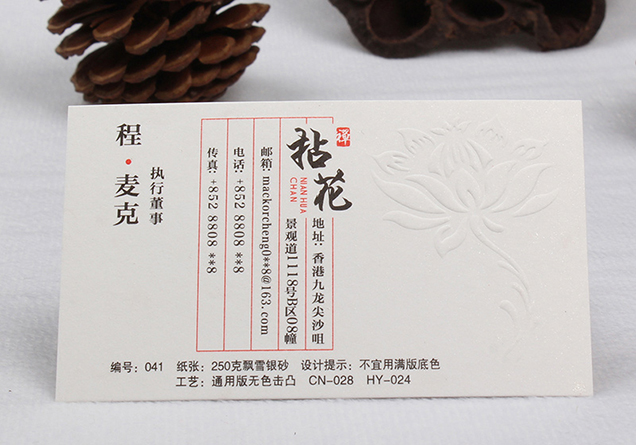 禅
拈花
NIAN HUA
CHAN
地址：香港九龙尖沙咀
景观道1118号B区08幢
邮箱：mackorcheng0**8@163.com
电话：+852 8808 **8
传真：+852 8808 **8
执行董事
程·麦克
编号：041 纸张：250克飘雪银砂 设计提示：不宜用满版底色
工艺：通用版无色击凸 CN-028 HY-024